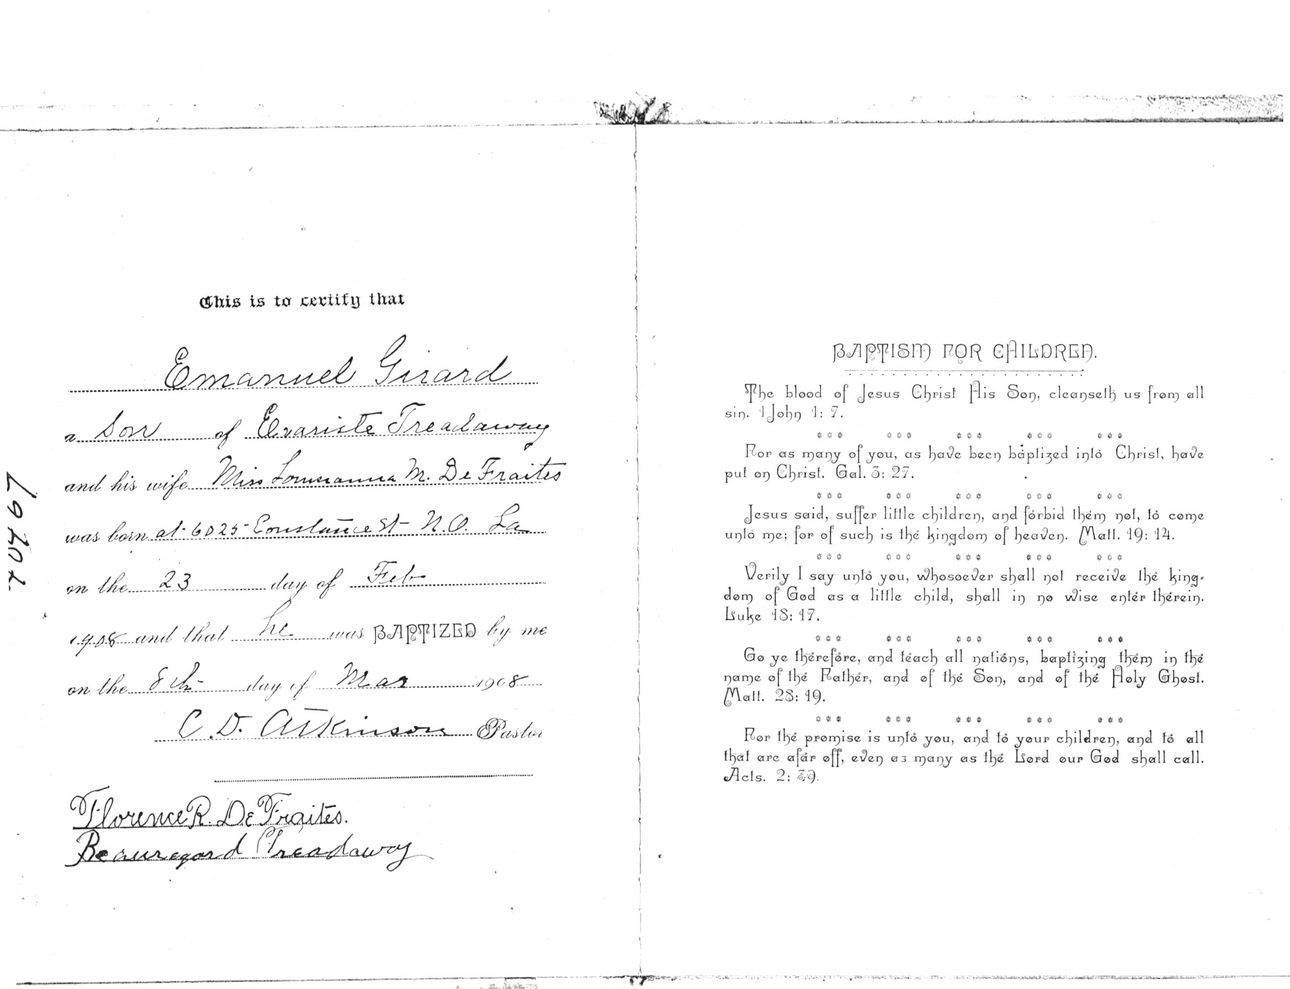 This is to certify that
Emanuel Girard
a Son of Evariste Treadaway
and his wife Miss Louisianna M. De Fraites
was born at 6025 Constance St N.O. La
on the 23 day of Feb
1908 and that he was BAPTIZED by me
on the 8th day of Mar 1908
C. D. Atkinson Pastor
Florence R. De Fraites.
Beauregard Treadaway
BAPTISM FOR CHILDREN.
The blood of Jesus Christ His Son, cleanseth us from all
sin. 1 John 1: 7.
For as many of you, as have been baptized into Christ, have
put on Christ. Gal. 3: 27.
Jesus said, suffer little children, and forbid them not, to come
unto me; for of such is the kingdom of heaven. Matt. 19: 14.
Verily I say unto you, whosoever shall not receive the king-
dom of God as a little child, shall in no wise enter therein.
Luke 18: 17.
Go ye therefore, and teach all nations, baptizing them in the
name of the Father, and of the Son, and of the Holy Ghost.
Matt. 28: 19.
For the promise is unto you, and to your children, and to all
that are afar off, even as many as the Lord our God shall call.
Acts. 2: 39.